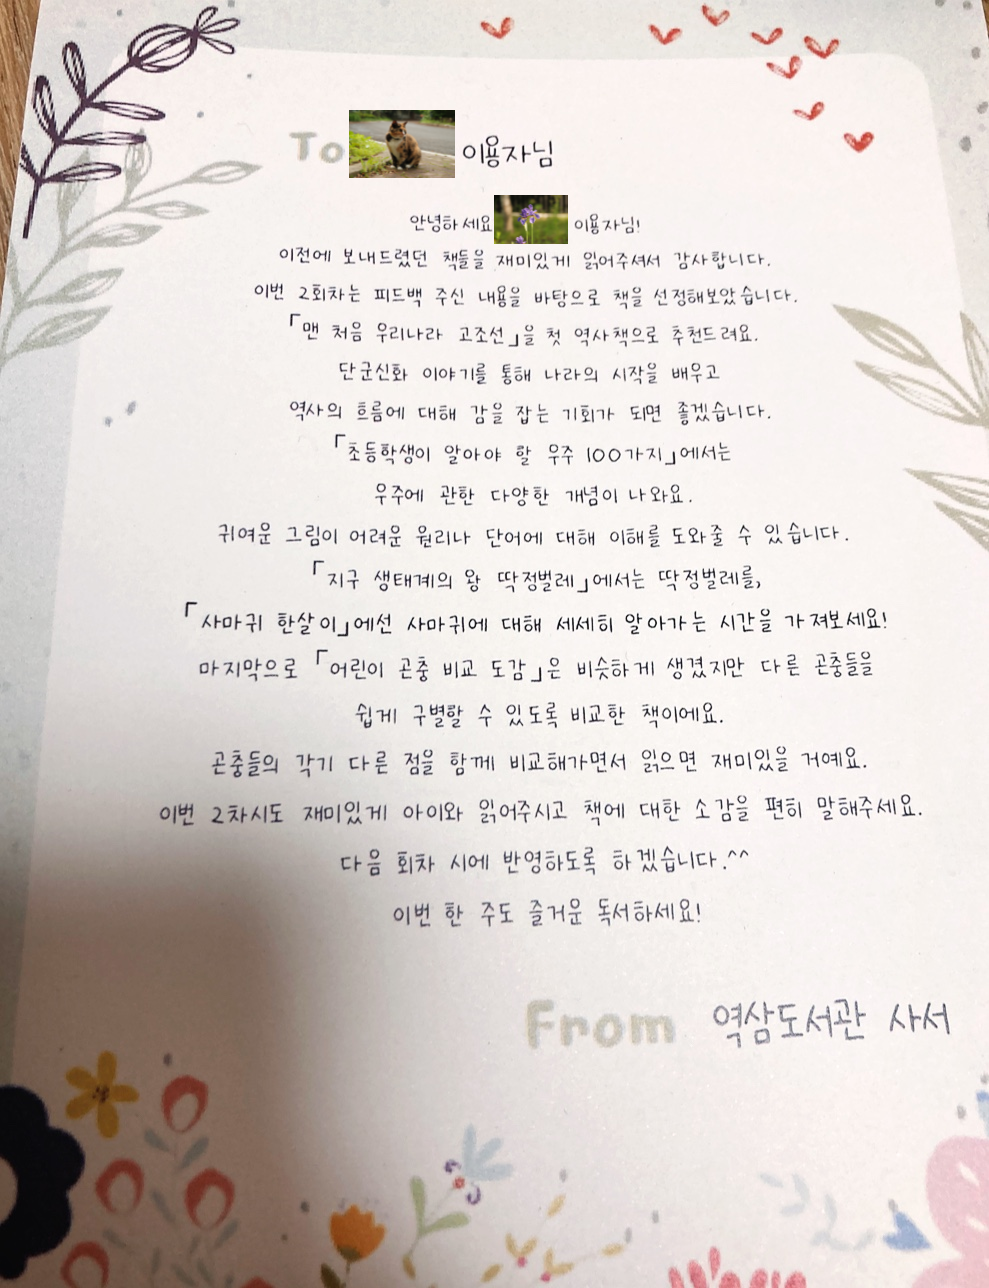 To 이용자님
안녕하세요 이용자님!
이전에 보내드렸던 책들을 재미있게 읽어주셔서 감사합니다.
이번 2회차는 피드백 주신 내용을 바탕으로 책을 선정해보았습니다.
「맨 처음 우리나라 고조선」을 첫 역사책으로 추천드려요.
단군신화 이야기를 통해 나라의 시작을 배우고
역사의 흐름에 대해 감을 잡는 기회가 되면 좋겠습니다.
「초등학생이 알아야 할 우주 100가지」에서는
우주에 관한 다양한 개념이 나와요.
귀여운 그림이 어려운 원리나 단어에 대해 이해를 도와줄 수 있습니다.
「지구 생태계의 왕 딱정벌레」에서는 딱정벌레를,
「사마귀 한살이」에선 사마귀에 대해 세세히 알아가는 시간을 가져보세요!
마지막으로 「어린이 곤충 비교 도감」은 비슷하게 생겼지만 다른 곤충들을
쉽게 구별할 수 있도록 비교한 책이에요.
곤충들의 각기 다른 점을 함께 비교해가면서 읽으면 재미있을 거예요.
이번 2차시도 재미있게 아이와 읽어주시고 책에 대한 소감을 편히 말해주세요.
다음 회차 시에 반영하도록 하겠습니다.^^
이번 한 주도 즐거운 독서하세요!
From 역삼도서관 사서